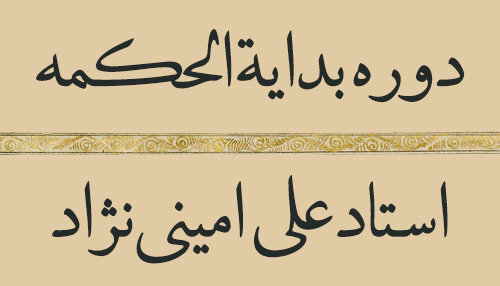 دوره بدایة الحکمه
استاد علی امینی نژاد